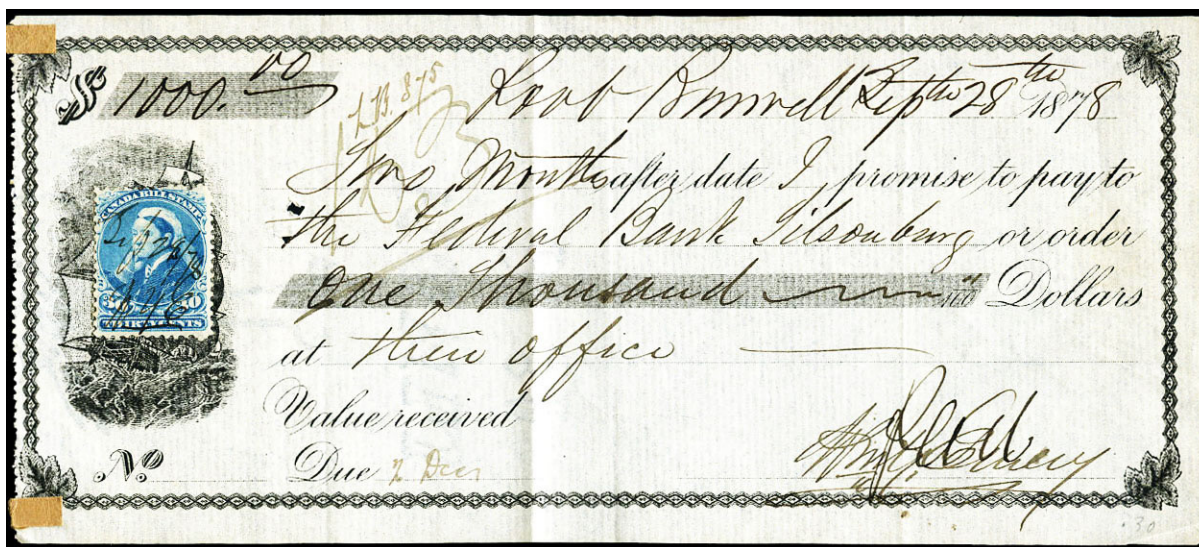 $ 1000.00 Sept 28th 1878
Two Months after date I promise to pay to
the Federal Bank Tilsonburg or order
One Thousand Dollars
at their office
Value received
No Due Dec
CANADA BILL STAMP
Sept 28/78
CENTS
30